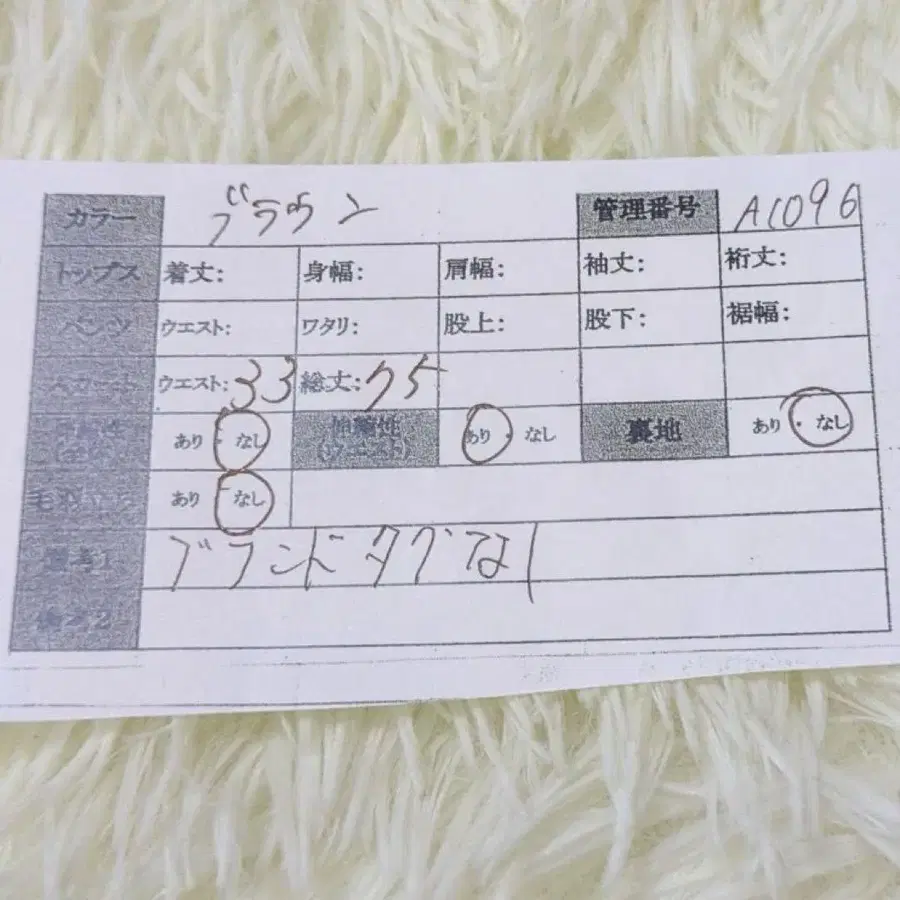 カラー ブラウン 管理番号 A1096
トップス 着丈: 身幅: 肩幅: 袖丈: 裄丈:
パンツ ウエスト: ワタリ: 股上: 股下: 裾幅:
スカート ウエスト: 33 総丈: 75
あり・なし 伸縮性 あり・なし 裏地 あり・なし
(ウエスト)
あり・なし
備考1 ブランドタグなし
備考2